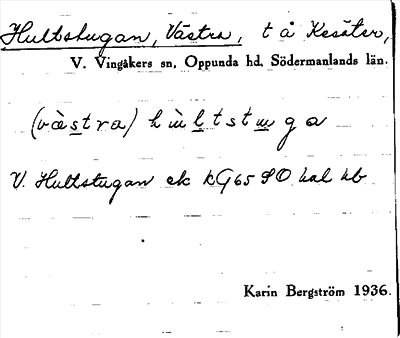 Hultstugan, Västra, t å Kesäter,
V. Vingåkers sn, Oppunda hd, Södermanlands län.
(västra) hùltstuga
V. Hultstugan ek kG65SO hal hb
Karin Bergström 1936.